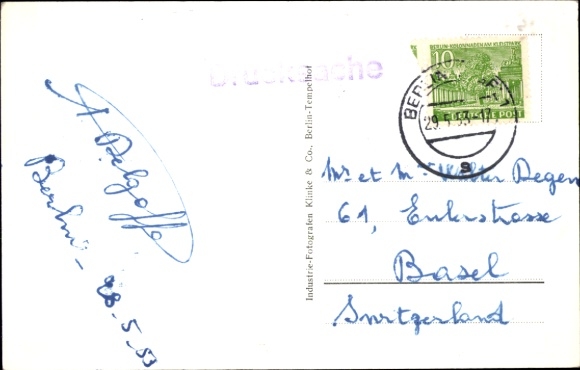 Drucksache
10
BERLIN-KOLONNADEN AM KLEISTPARK
POST
BERLIN
29.5.53-17
a
A Delgoffe
Berlin - 28-5-53
Industrie-Fotografen Klinke & Co., Berlin-Tempelhof
Mr et Mme Walter Degen
61, Eulerstrasse
Basel
Switzerland